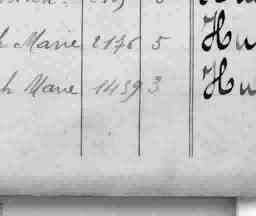 h Marie 2176 5 Hu
h Marie 1439 3 Hu